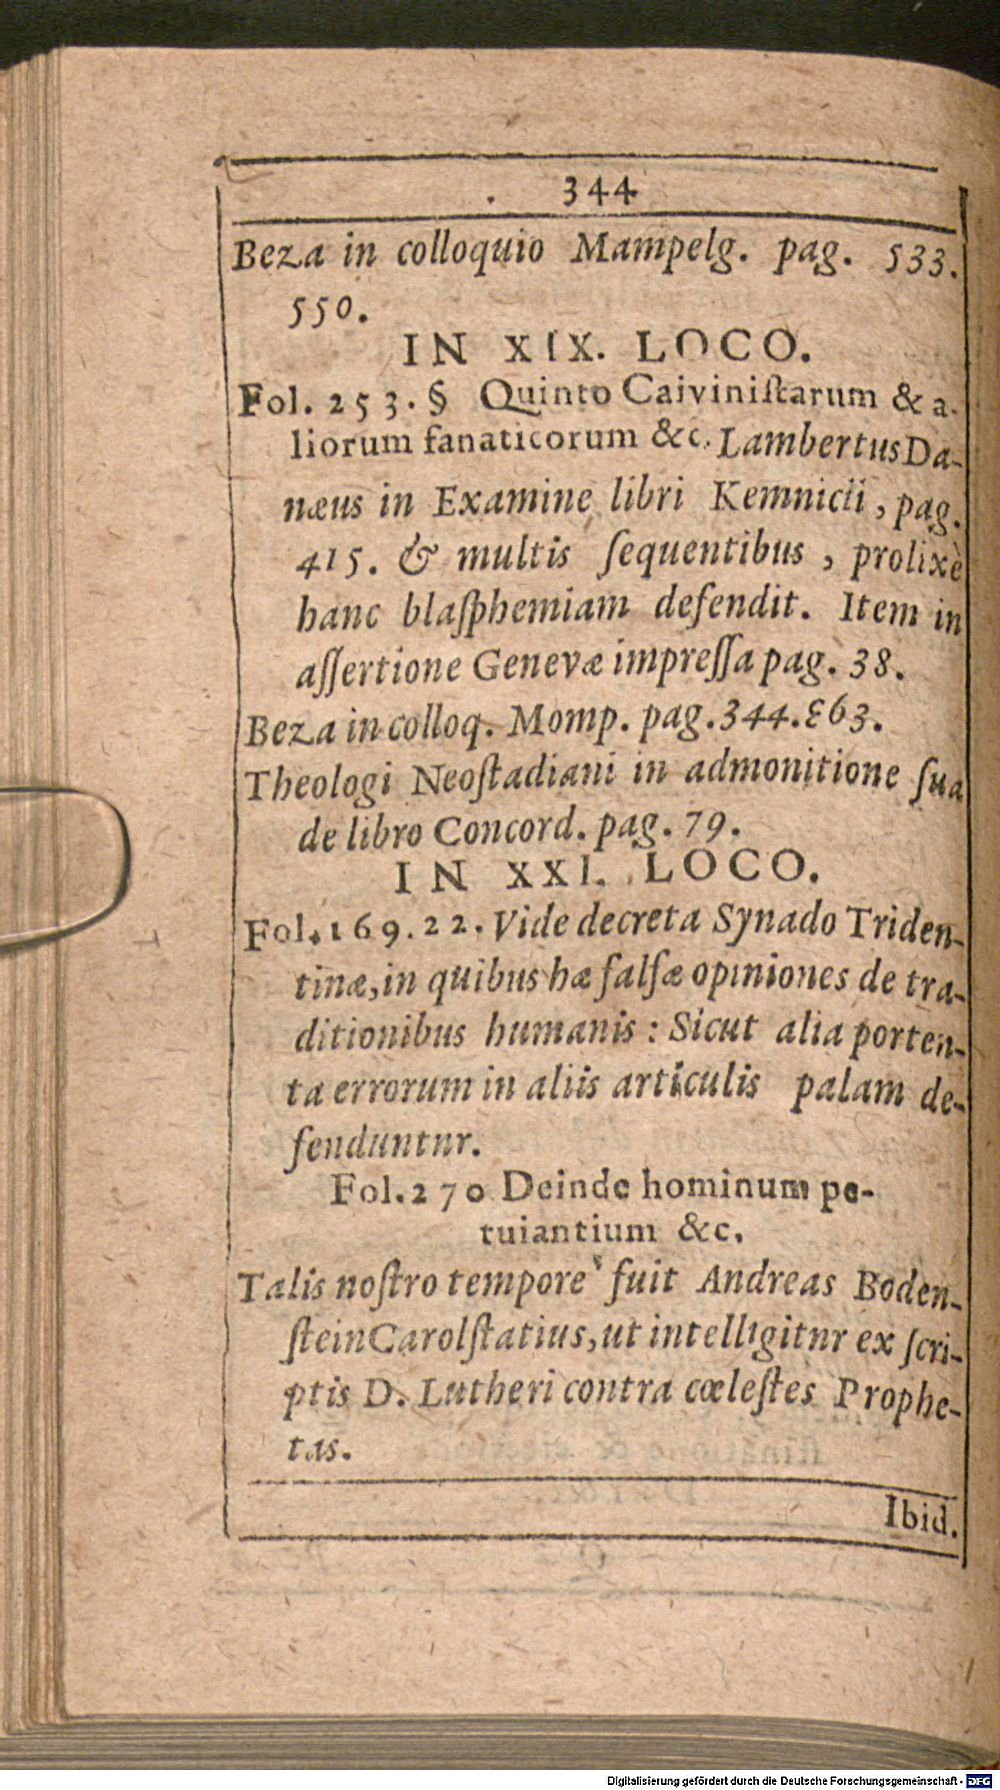 344
Beza in colloquio Mampelg. pag. 533.
550.
IN XIX. LOCO.
Fol. 253. § Quinto Caiviniſtarum & a-
liorum fanaticorum &c. Lambertus Da-
næus in Examine libri Kemnicii, pag.
415. & multis ſequentibus, prolixè
hanc blaſphemiam defendit. Item in
aſſertione Genevæ impreſſa pag. 38.
Beza in colloq. Momp. pag. 344. 363.
Theologi Neoſtadiani in admonitione ſua
de libro Concord. pag. 79.
IN XXI. LOCO.
Fol. 169. 22. Vide decreta Synado Triden-
tinæ, in quibus hæ falſæ opiniones de tra-
ditionibus humanis: Sicut alia porten-
ta errorum in aliis articulis palam de-
fenduntnr.
Fol. 270 Deinde hominum pe-
tuiantium &c.
Talis noſtro tempore fuit Andreas Boden-
ſtein Carolſtatius, ut intelligitnr ex ſcri-
ptis D. Lutheri contra cœleſtes Prophe-
tas.
Ibid.
Digitalisierung gefördert durch die Deutsche Forschungsgemeinschaft - DFG